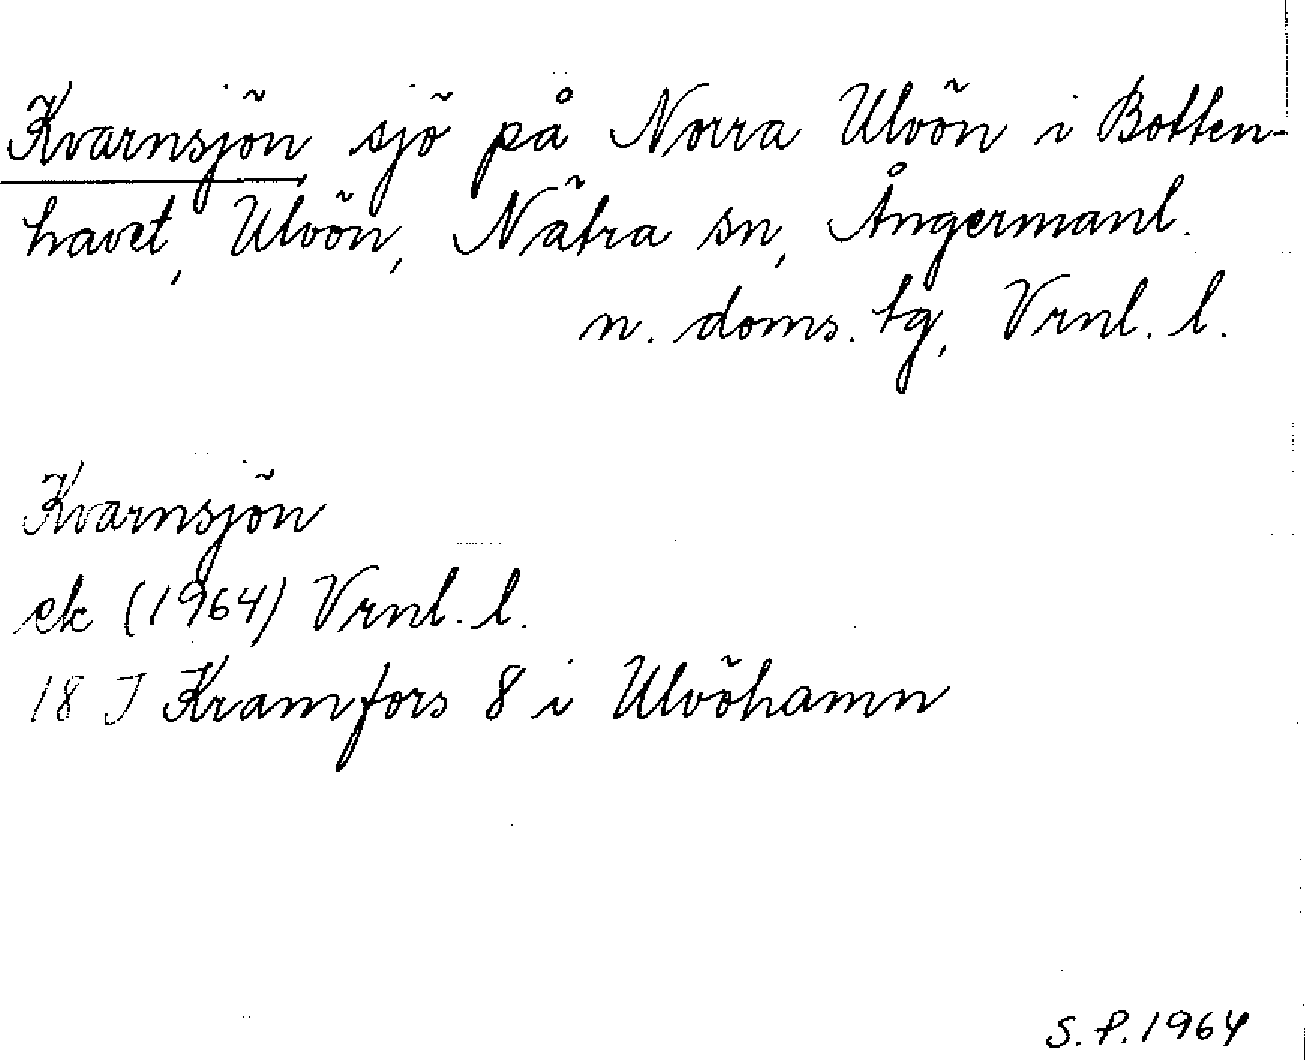 Kvarnsjön sjö på Norra Ulvön i Botten-
havet, Ulvön, Nätra sn, Ångermanl.
n. doms. tg, Vrnl. l.
Kvarnsjön
ek (1964) Vrnl. l.
18 J Kramfors 8 i Ulvöhamn
S. P. 1964